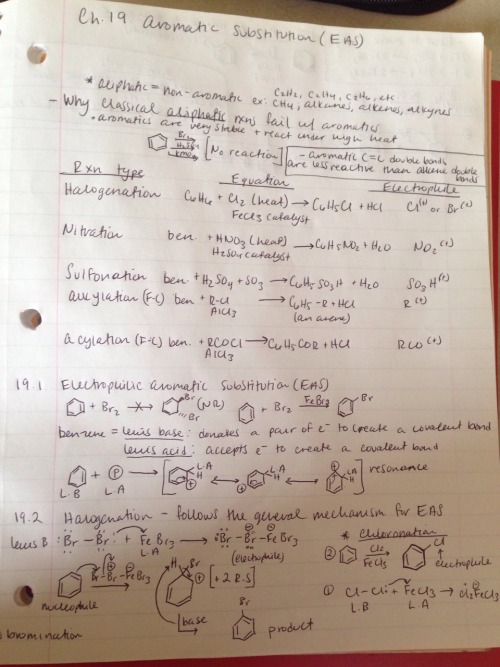 Ch. 19 Aromatic Substitution (EAS)
* aliphatic = non-aromatic ex: C2H2, C2H4, C2H6, etc
CH4, alkanes, alkenes, alkynes
- Why classical aliphatic rxns fail w/ aromatics
• aromatics are very stable + react under high heat
Br2
H2SO4
KMnO4
[No reaction]
- aromatic C=C double bonds
are less reactive than alkene double
bonds
Rxn type Equation Electrophile
Halogenation C6H6 + Cl2 (heat) → C6H5Cl + HCl Cl(+) or Br(+)
FeCl3 catalyst
Nitration ben. + HNO3 (heat) → C6H5NO2 + H2O NO2(+)
H2SO4 catalyst
Sulfonation ben. + H2SO4 + SO3 → C6H5-SO3H + H2O SO3H(+)
alkylation (F-C) ben + R-Cl → C6H5-R + HCl R(+)
AlCl3 (an arene)
acylation (F-C) ben. + RCOCl → C6H5COR + HCl RCO(+)
AlCl3
19.1 Electrophilic aromatic substitution (EAS)
+ Br2 → Br (NR) + Br2 FeBr3 → Br
Br
benzene = lewis base: donates a pair of e- to create a covalent bond
lewis acid: accepts e- to create a covalent bond
+ → [ L.A H ↔ L.A H ↔ L.A H ] resonance
L.B L.A
19.2 Halogenation - follows the general mechanism for EAS
lewis B :Br-Br: + FeBr3 → :Br-Br-FeBr3 * chloronation
L.A (electrophile)
② Cl2 → Cl
FeCl3 electrophile
Br-Br-FeBr3 → H Br + [+2 R.S]
nucleophile
① Cl-Cl: + FeCl3 → Cl2FeCl3
L.B L.A
base → Br product
bromination